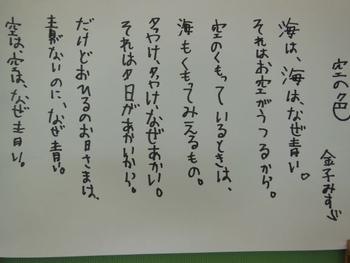 空の色
金子みすゞ
海は、海は、なぜ青い。
それはお空がうつるから。
空のくもっているときは、
海もくもってみえるもの。
夕やけ、夕やけ、なぜあかい。
それは夕日があかいから。
だけどおひるのお日さまは、
青かないのに、なぜ青い。
空は、空は、なぜ青い。